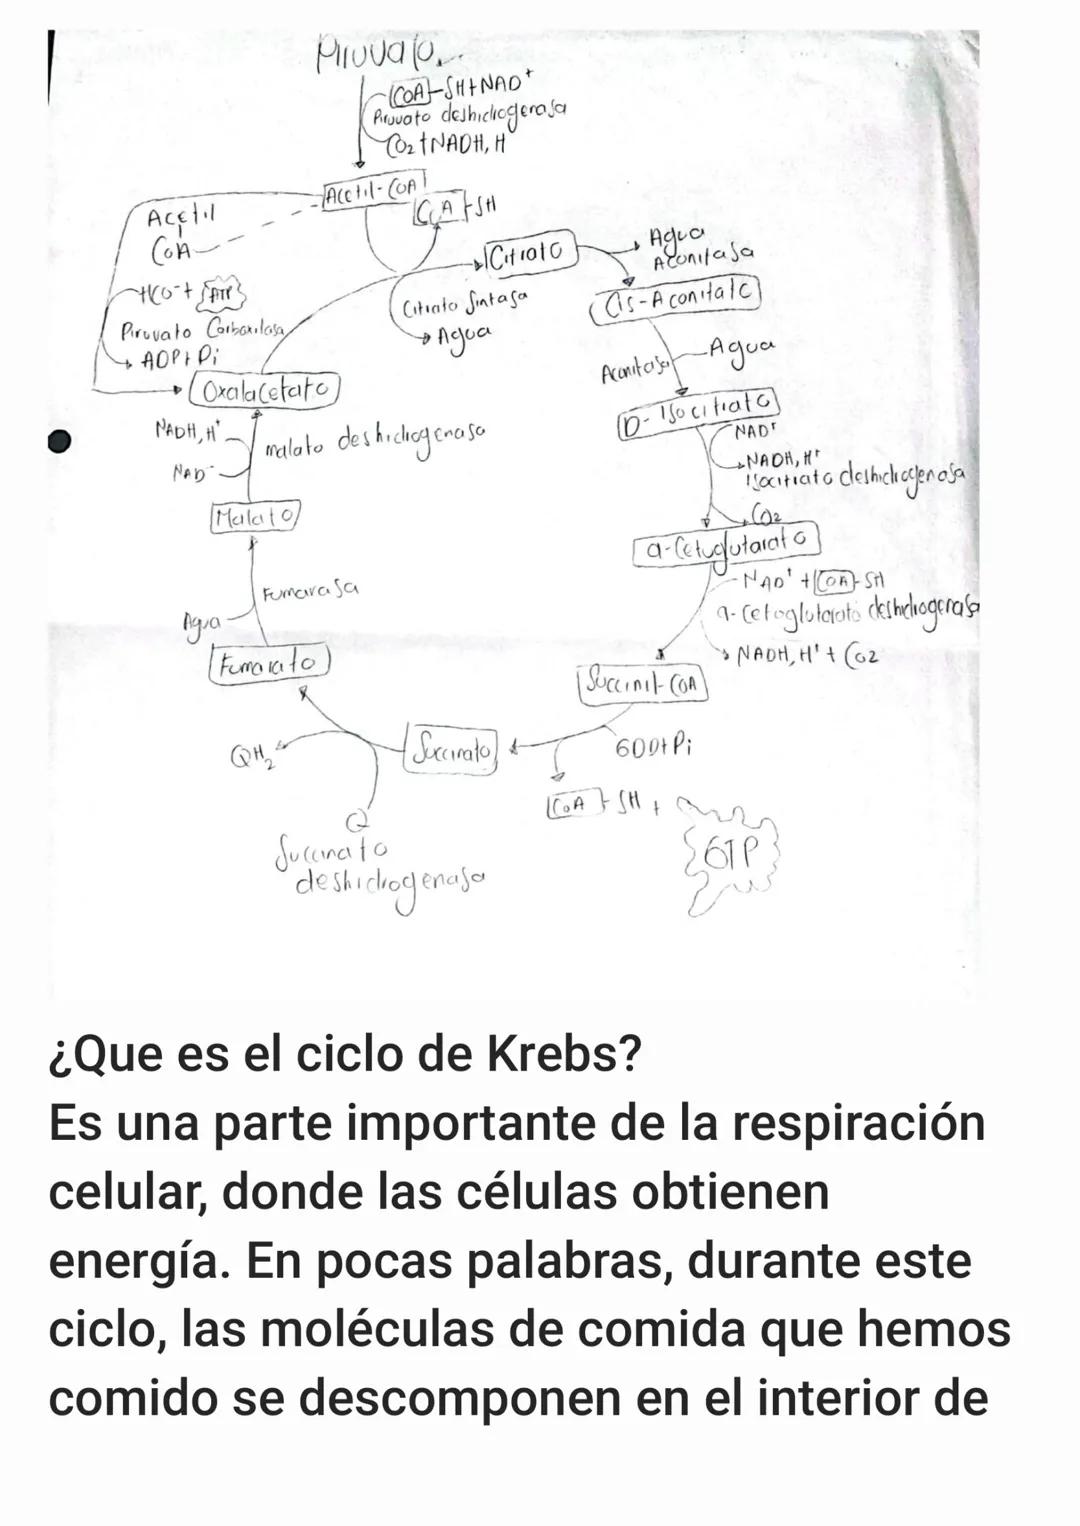 Piruvato
CoA-SH+NAD+
Piruvato deshidrogenasa
CO2+NADH, H
Acetil-CoA
CoA-SH
Acetil
CoA
HCO-+ ATP
Piruvato Carboxilasa
ADP+Pi
Oxalacetato
Citrato Sintasa
Agua
Citrato
Agua
Aconitasa
Cis-Aconitato
Aconitasa
Agua
D-Isocitrato
NAD+
NADH, H+
Isocitrato deshidrogenasa
CO2
α-Cetoglutarato
NAD+ + CoA-SH
α-Cetoglutarato deshidrogenasa
NADH, H+ + CO2
Succinil-CoA
GDD+Pi
CoA-SH +
GTP
Succinato
Q
QH2
Succinato
deshidrogenasa
Fumarato
Agua
Fumarasa
Malato
NADH, H+
NAD-
malato deshidrogenasa
¿Que es el ciclo de Krebs?
Es una parte importante de la respiración
celular, donde las células obtienen
energía. En pocas palabras, durante este
ciclo, las moléculas de comida que hemos
comido se descomponen en el interior de